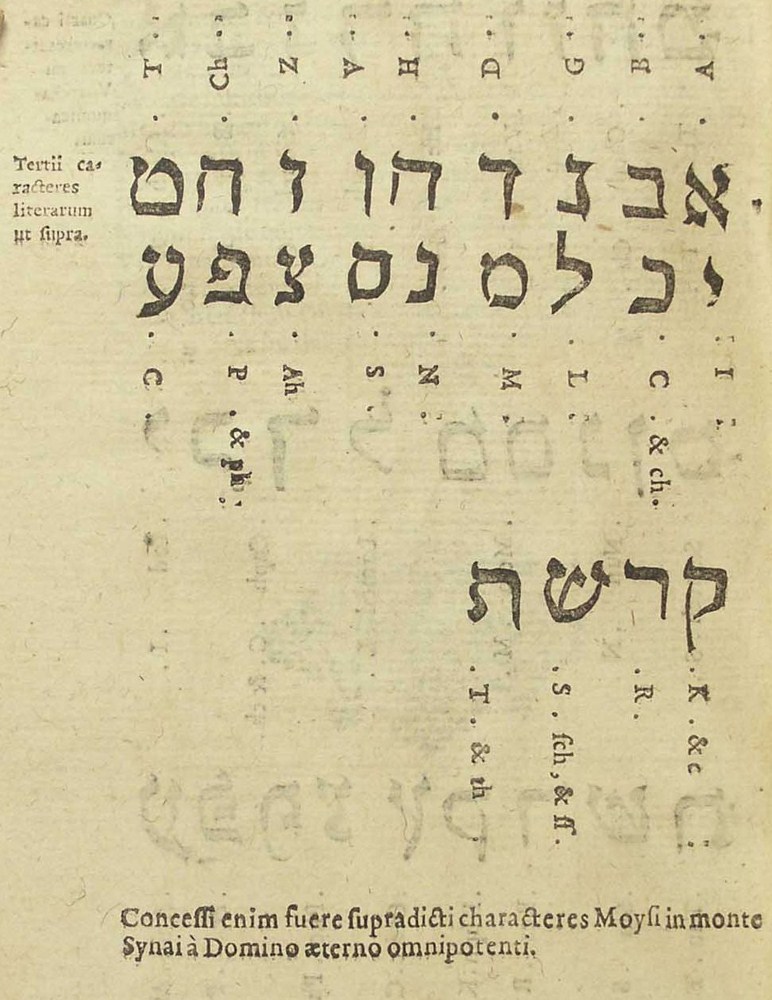 T Ch Z V H D G B A
Tertii ca-
racteres
literarum
ut ſupra.
א ב ג ד ה ו ז ח ט
י כ ל מ נ ס צ פ ע
C . P . & ph . Ah S . N M . L . C . & ch . I
ק ר ש ת
T . & th S . ſch, & ſſ . R . K . & c
Conceſſi enim fuere ſupradicti characteres Moyſi in monte
Synai à Domino æterno omnipotenti.